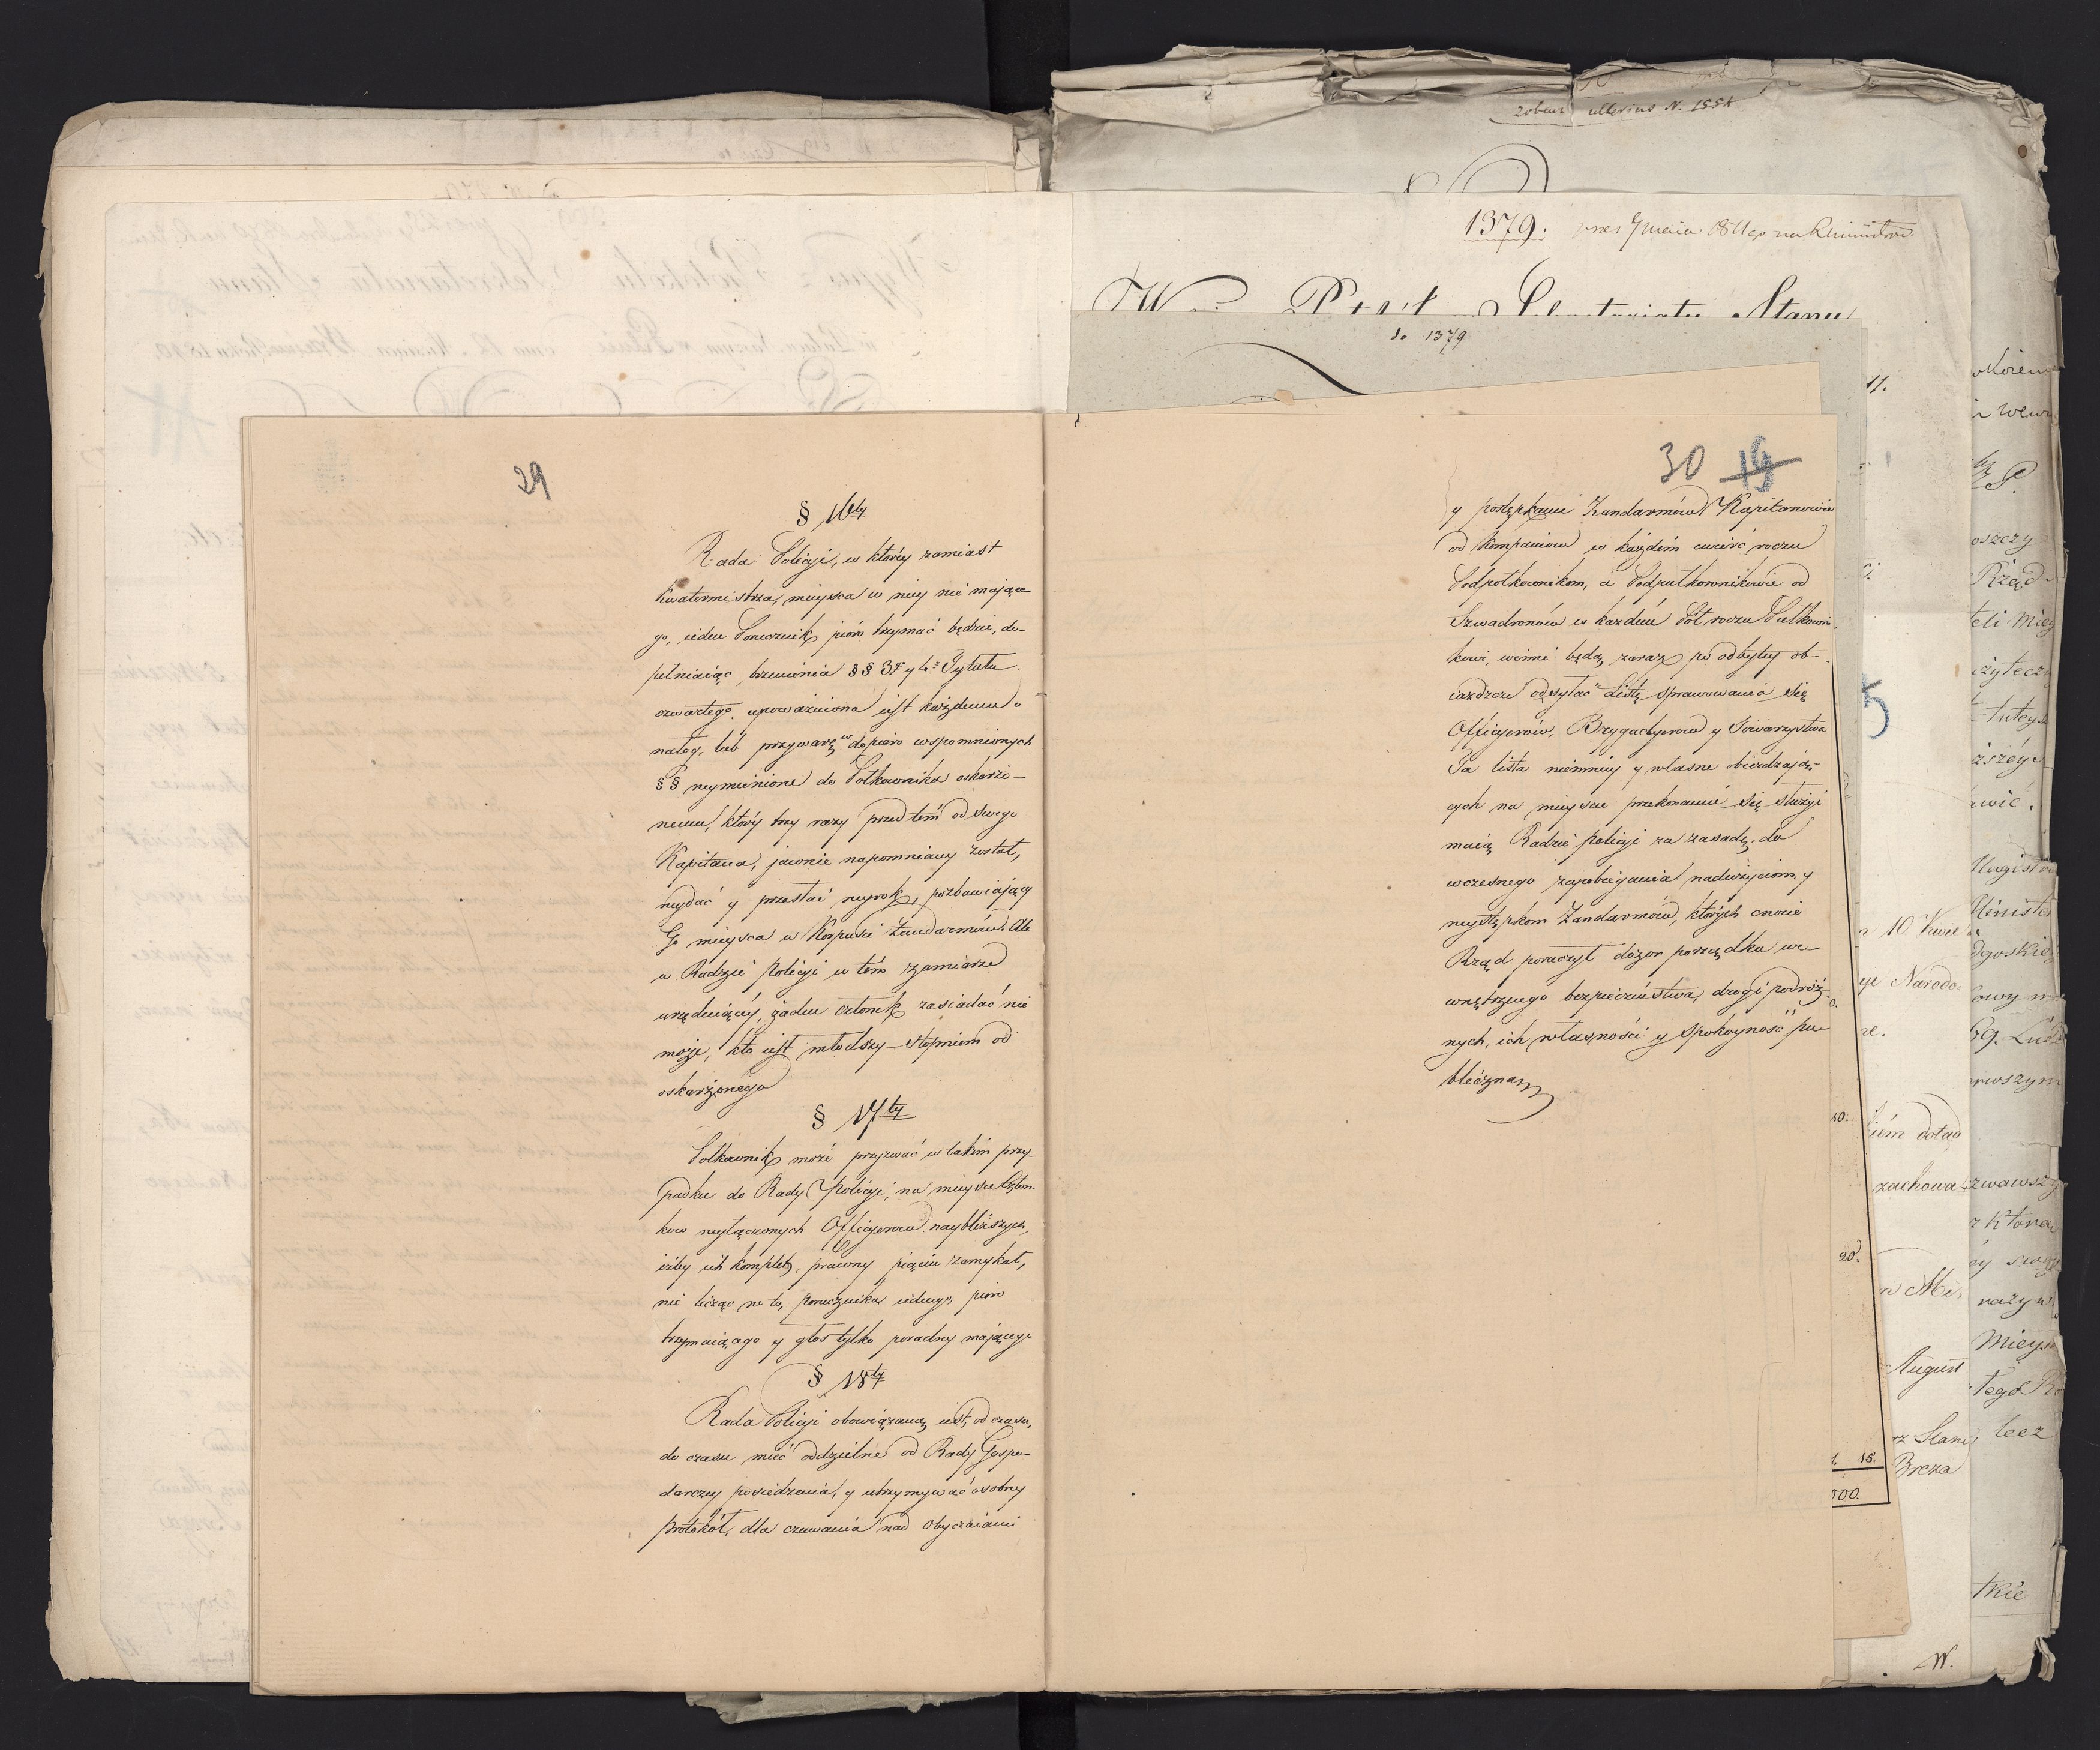 zobacz ulterius N. 1554
1379.
Stanu
do 1379
29
§ 16ty
Rada Policyi, w którey zamiast
kwatermistrza, mieysca w niey nie mające-
go, ieden Porucznik pióro trzymać będzie, do-
pełniaiąc brzemienia §§ 3go y 4o Tytułu
czwartego, upoważniona iest każdemu o
nałog, lub przywarę w dopiero wspomnionych
§§ wymienione do Połkownika oskarżo-
nemu, który trzy razy przed tem od swego
Kapitana, jawnie napomniany został,
wydać y przesłać wyrok, pozbawiający
Go mieysca w Korpusie Żandarmów. Ale
w Radzie Policyi w tém zamiarze
urzęduiącéy, żaden członek zasiadać nie
może, kto iest młodszy stopniem od
oskarżonego
§ 17ty
Połkownik może przyzwać w takim przy-
padku do Rady Policyi, na mieysce człon-
kow wyłączonych Officyerow naybliższych,
iżby ich komplet, prawny pięciu zamykał,
nie licząc w to, Porucznika iednego, pioro
trzymaiącego y głos tylko poradny mającego
§ 18ty
Rada Policyi obowiązana, iest, od czasu,
do czasu mieć oddzielne od Rady Gospo-
darczey posiedzenia, y utrzymywać osobny
protokół, dla czuwania nad obyczaiami
30 19
y postępkami Żandarmów. Kapitanowie
od kompaniow w każdém ćwierć roczu
Podpołkownikom, a Podpułkownikowie od
Szwadronów w każdém Pół roczu Pułkowni-
kowi, winni będą, zaraz po odbytey ob-
iazdzce odsyłać Listę sprawowania się
Officyerów, Brygadyerow y Towarzystwa
Ta lista niemniey y własne obieżdzają-
cych na mieyscu przekonanie się służyć
maią Radzie Policyi za zasadę, do
wczesnego zapobiegania nadużyciom, y
występkom Żandarmów, których cnocie
Rząd poruczył dozór porządku we-
wnętrznego bezpieczeństwa, drogi podróż-
nych, ich własności y spokoyność pu-
bliczna
11.
10
Narodo-
dotąd
zachowa
August
Breza
10.
20.
15.
000.
Rząd
lecz
W.